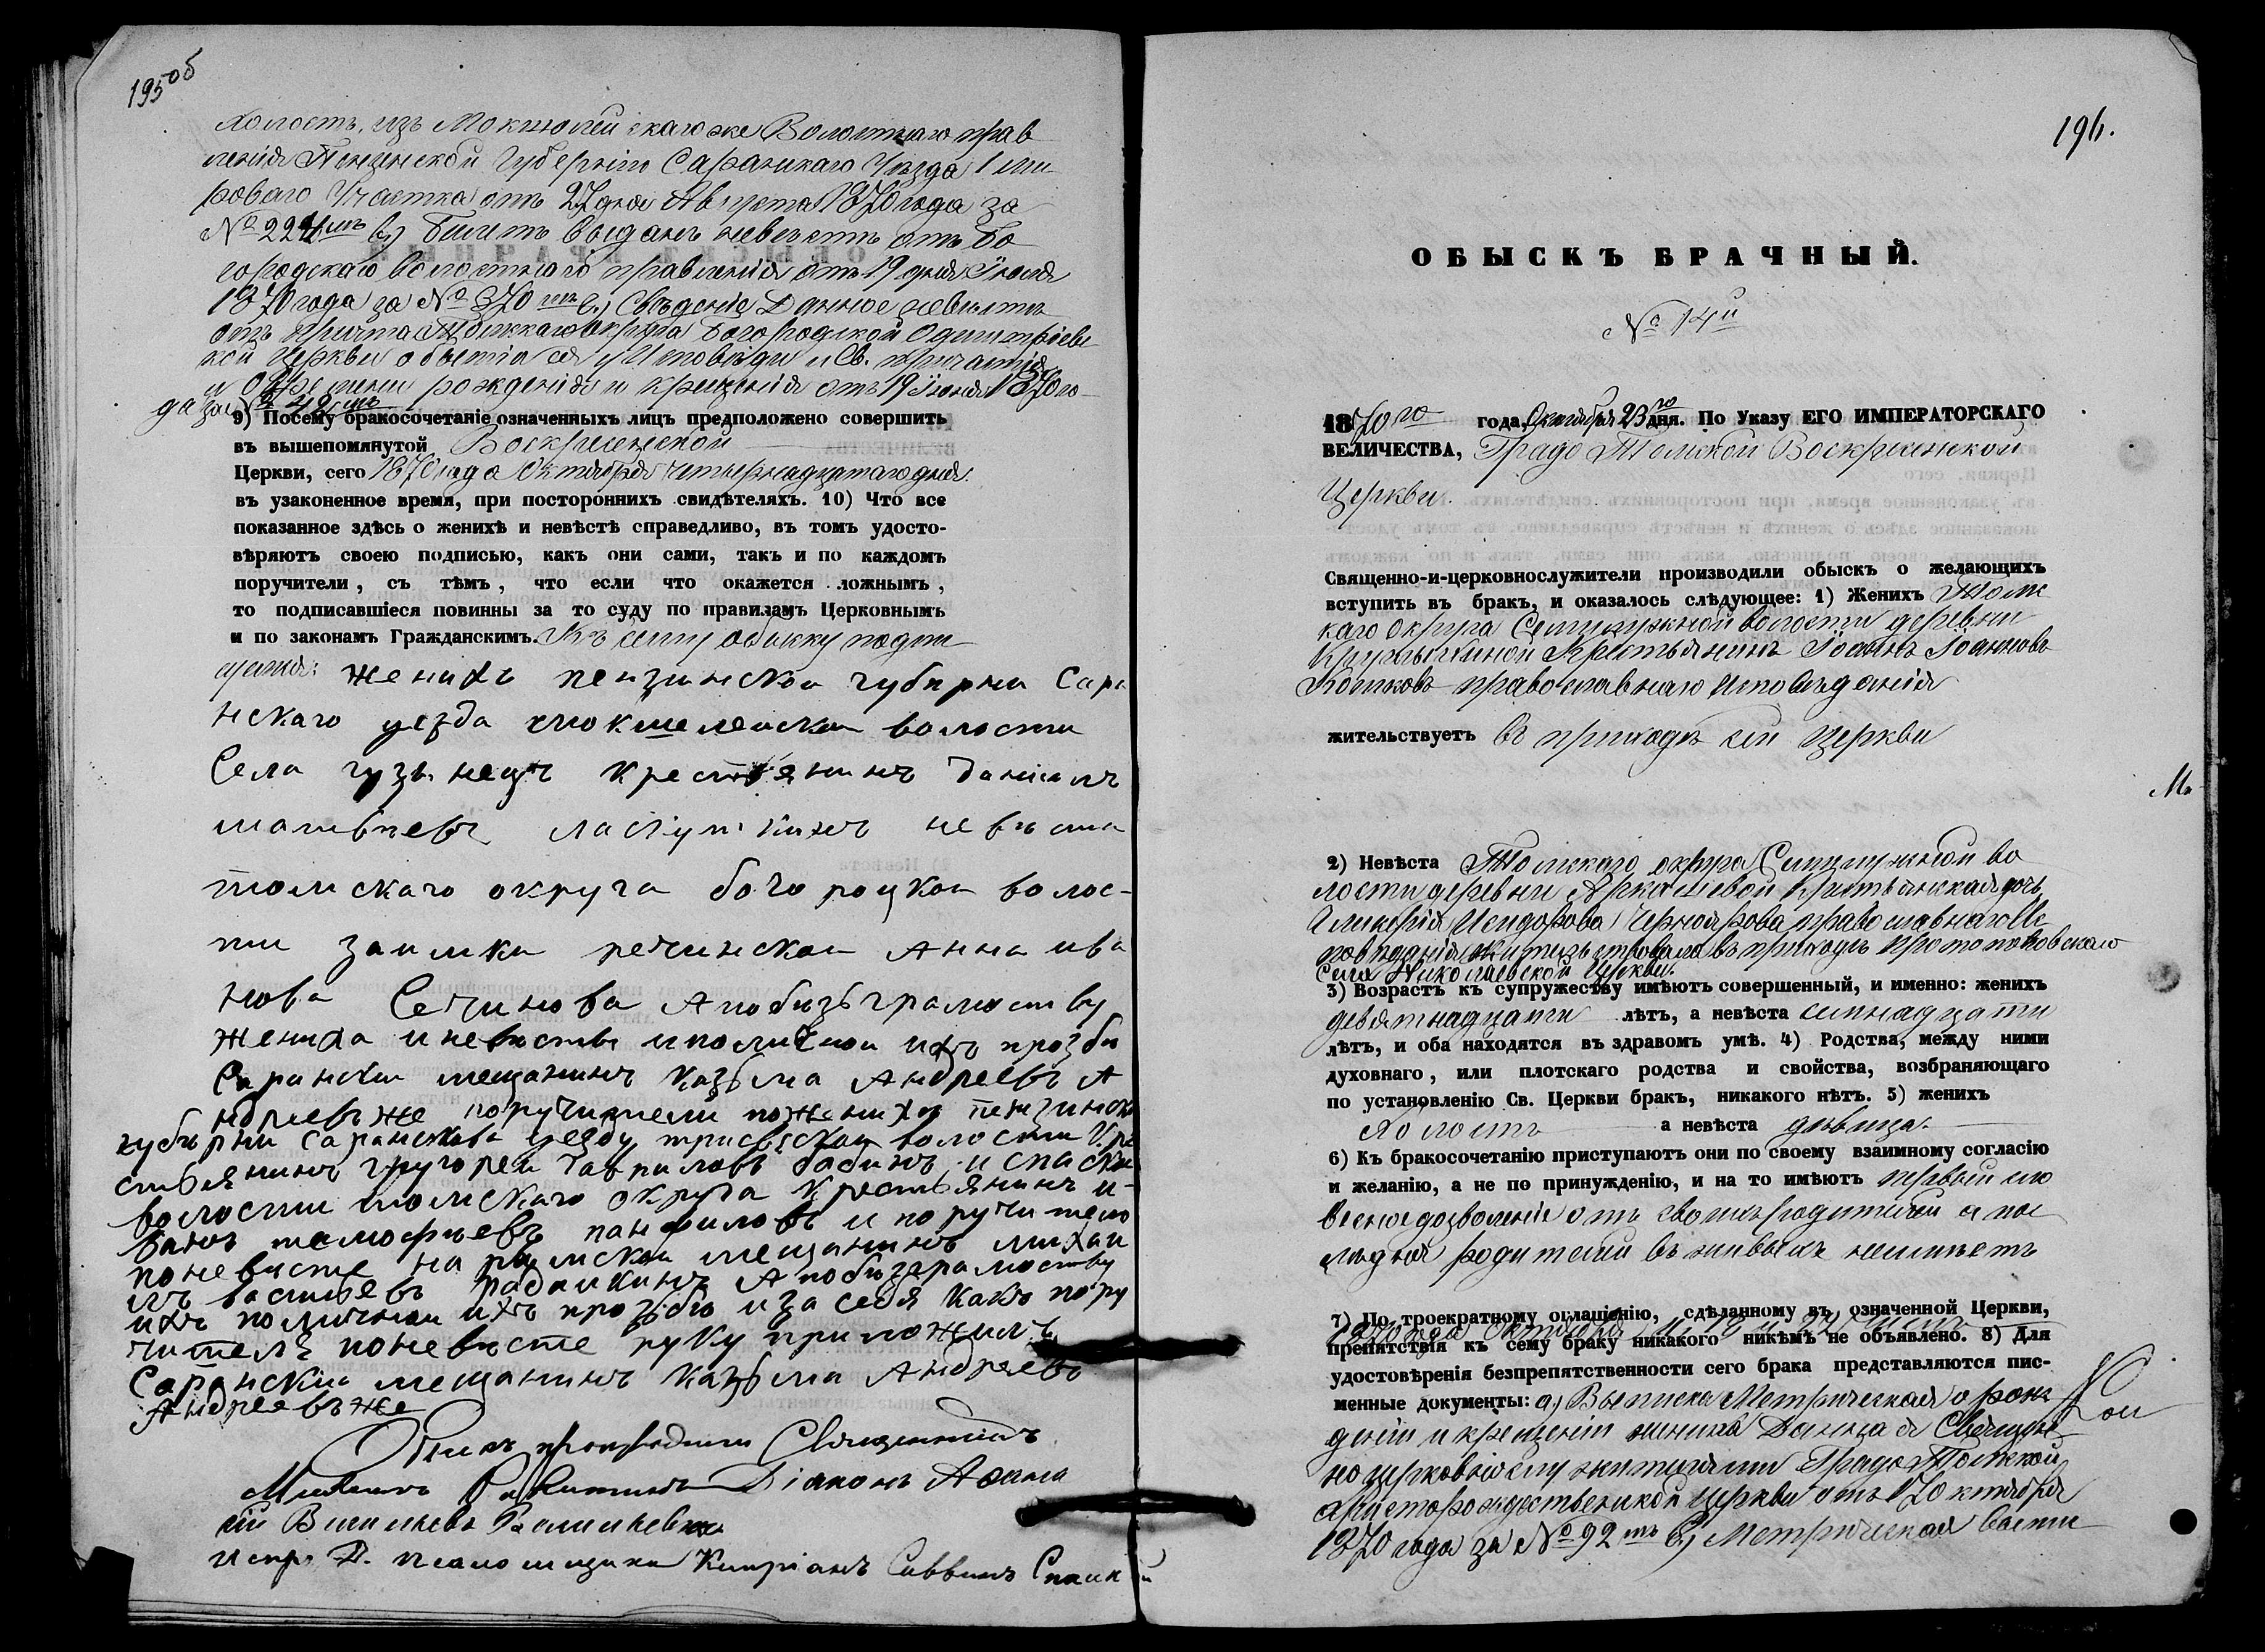 195об
холостъ, изъ Мокшолей скаго же Волостнаго прав
ленія Пензенской Губерніи Саранскаго Уѣзда 1 ми
роваго Участка отъ 27 дня Августа 1870 года за
№ 224мъ в) Билетъ выданъ невѣстѣ отъ Бо
городскаго волостнаго правленія отъ 19 дня Іюля
1870 года за № 370мъ Свѣденіе Данное невѣстѣ
отъ причта Томскаго Округа Богородской Одигитріевс
кой Церкви о бытіи ея у Исповѣди и Св. причастія
и о времени рожденія и крещенія отъ 19 Іюня 1870 го
да за № 42мъ
9) Посему бракосочетаніе означенныхъ лицъ предположено совершить
въ вышепомянутой Воскресенской
Церкви, сего 1870 года Октября четырнадцатаго дня
въ узаконенное время, при постороннихъ свидѣтеляхъ. 10) Что все
показанное здѣсь о женихѣ и невѣстѣ справедливо, въ томъ удосто-
вѣряютъ своею подписью, какъ они сами, такъ и по каждомъ
поручители, съ тѣмъ, что если что окажется ложнымъ,
то подписавшіеся повинны за то суду по правиламъ Церковнымъ
и по законамъ Гражданскимъ. Къ сему обыску подпи
суемся: женихъ пензинской губерни Сара
нскаго уезда мокшелейской волости
Села гузынецъ крестьянинъ данилъ
матвѣевъ ласкуткинъ невѣста
томскаго округа богороцкой волос-
ти заимки речинской Анна ива
нова Сечинова А побизъграмоству
жениха и невѣсты и поличной ихъ прозби
Сарански мещанинъ Казьма Андреевъ А
ндреевъ же поручители по жениху пензинско
губѣрни саранскава уезду трисвяской волости кре
стьянинъ григорей гавриловъ бабинъ и спаской
волости томскаго округа крестьянинъ и-
ванъ тимофиевъ панфиловъ и поручители
по невисте нарымской мещанинъ михаи
лъ васильевъ радаикинъ А побизграмоству
ихъ поличной ихъ прозьбѣ и за себя какъ пору
читель по невисте руку приложилъ
Саранскiй мещанинъ Казьма Андреевъ
Андреевъ же
Обыскъ производили Священникъ
Михаилъ Діаконъ Афана
сій Васильевъ
Испр. д. псаломщика Кипріанъ Саввинъ
196.
ОБЫСКЪ БРАЧНЫЙ.
№ 14й
1870го года, Октября 23го дня. По Указу ЕГО ИМПЕРАТОРСКАГО
ВЕЛИЧЕСТВА, Градо Томской Воскресенской
Церкви.
Священно-и-церковнослужители производили обыскъ о желающихъ
вступить въ бракъ, и оказалось слѣдующее: 1) Женихъ Томс
каго округа Семилужной волости деревни
Крестьянинъ Іоаннъ Іоанновъ
Котковъ православнаго исповѣданія
жительствуетъ въ приходѣ сей церкви
2) Невѣста Томскаго округа Семилужной во
лости деревни Аркашевой Крестьянская дочь
Гликерія Исидорова Черноярова православнаго Ис
повѣданія Жительствовала въ приходѣ Протопоповскаго
Села Николаевской Церкви.
3) Возрастъ къ супружеству имѣютъ совершенный, и именно: женихъ
девятнадцати лѣтъ, а невѣста семнадцати
лѣтъ, и оба находятся въ здравомъ умѣ. 4) Родства, между ними
духовнаго, или плотскаго родства и свойства, возбраняющаго
по установленію Св. Церкви бракъ, никакого нѣтъ. 5) женихъ
Холостъ а невѣста дѣвица.
6) Къ бракосочетанію приступаютъ они по своему взаимному согласію
и желанію, а не по принужденію, и на то имѣютъ первый сло
весное дозволеніе отъ своихъ родителей а пос
лѣдняя родителей въ живыхъ неимѣетъ
7) По троекратному оглашенію, сдѣланному въ означенной Церкви,
1870 года Октября
препятствія къ сему браку никакого никѣмъ не объявлено. 8) Для
удостовѣренія безпрепятственности сего брака представляются пис-
менные документы: а) Выписка Метрическая о рож
деніи и крещеніи жениха Данная Священ
но церковнослужителями Градо Томской
Христорождественской церкви отъ 17 Октября
1870 года за № 92мъ б) Метрическая выпи